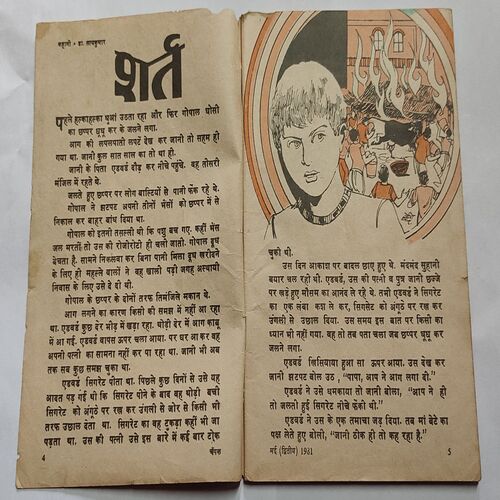 कहानी • डा. रामकुमार
शर्त
पहले हलकाहलका धुआं उठता रहा और फिर गोपाल घोसी
का छप्पर धूधू कर के जलने लगा.
आग की लपलपाती लपटें देख कर जानी तो सहम ही
गया था. जानी कुल सात साल का तो था ही.
जानी के पिता एडवर्ड दौड़ कर नीचे पहुंचे. वह तीसरी
मंजिल में रहते थे.
जलते हुए छप्पर पर लोग बाल्टियों से पानी फेंक रहे थे.
गोपाल ने झटपट अपनी तीनों भैंसों को छप्पर में से
निकाल कर बाहर बांध दिया था.
गोपाल को इतनी तसल्ली थी कि पशु बच गए. कहीं भैंस
जल मरतीं तो उस की रोजीरोटी ही चली जाती. गोपाल दूध
बेचता है. सामने निकलवा कर बिना पानी मिला दूध खरीदने
के लिए ही महल्ले वालों ने वह खाली पड़ी जगह अस्थायी
निवास के लिए उसे दे दी थी.
गोपाल के छप्पर के दोनों तरफ तिमंजिले मकान थे.
आग लगने का कारण किसी की समझ में नहीं आ रहा
था. एडवर्ड कुछ देर भीड़ में खड़ा रहा. थोड़ी देर में आग काबू
में आ गई. एडवर्ड वापस ऊपर चला आया. पर घर आ कर वह
अपनी पत्नी का सामना नहीं कर पा रहा था. जानी भी अब
तक सब कुछ समझ चुका था.
एडवर्ड सिगरेट पीता था. पिछले कुछ दिनों से उसे यह
आदत पड़ गई थी कि सिगरेट पीने के बाद वह थोड़ी बची
सिगरेट को अंगूठे पर रख कर उंगली से जोर से किसी भी
तरफ उछाल देता था. सिगरेट का वह टुकड़ा कहीं भी जा
पड़ता था. उस की पत्नी उसे इस बारे में कई बार टोक
4 चंपक
चुकी थी.
उस दिन आकाश पर बादल छाए हुए थे. मंदमंद सुहानी
बयार चल रही थी. एडवर्ड, उस की पत्नी व पुत्र जानी छज्जे
पर खड़े हुए मौसम का आनंद ले रहे थे. तभी एडवर्ड ने सिगरेट
का एक लंबा कश ले कर, सिगरेट को अंगूठे पर रख कर
उंगली से उछाल दिया. उस समय इस बात पर किसी का
ध्यान भी नहीं गया. वह तो तब पता चला जब छप्पर धूधू कर
जलने लगा.
एडवर्ड खिसियाया हुआ सा ऊपर आया. उस देख कर
जानी झटपट बोल उठा, "पापा, आप ने आग लगा दी."
एडवर्ड ने उसे धमकाया तो जानी बोला, "आप ने ही
तो जलती हुई सिगरेट नीचे फेंकी थी."
एडवर्ड ने उस के एक तमाचा जड़ दिया. तब मां बेटे का
पक्ष लेते हुए बोली, "जानी ठीक ही तो कह रहा है."
मई (द्वितीय) 1981 5